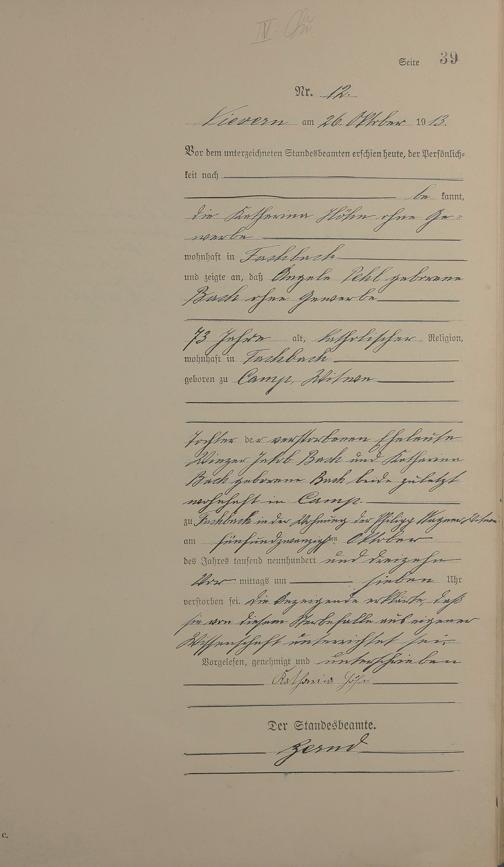 Seite 39
Nr. 12.
Nievern am 26. Oktober 1913.
Vor dem unterzeichneten Standesbeamten erschien heute, der Persönlich-
keit nach
be kannt,
die Katharina Höhn ohne Ge-
werbe
wohnhaft in Fachbach
und zeigte an, daß Angela Pehl geborene
Bach ohne Gewerbe
73 Jahre alt, katholischer Religion,
wohnhaft in Fachbach
geboren zu Camp, Witwe
Tochter der verstorbenen Eheleute
Winzer Jakob Bach und Katharina
Bach geborene Bach beide zuletzt
wohnhaft in Camp
zu Fachbach in der Wohnung der Philipp Wagner Witwe
am fünfundzwanzigsten Oktober
des Jahres tausend neunhundert und dreizehn
Vor mittags um sieben Uhr
verstorben sei. Die Anzeigende erklärte, daß
sie von diesem Sterbefalle aus eigener
Wissenschaft unterrichtet sei.
Vorgelesen, genehmigt und unterschrieben
Katharina Höhn
Der Standesbeamte.
c.